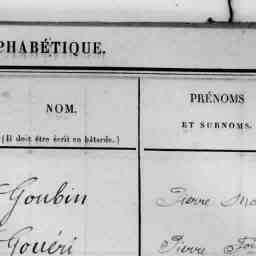 PHABÉTIQUE.
NOM.
(Il doit être écrit en bâtarde.)
PRÉNOMS
ET SURNOMS.
Goubin
Pierre
Gouéri
Pierre